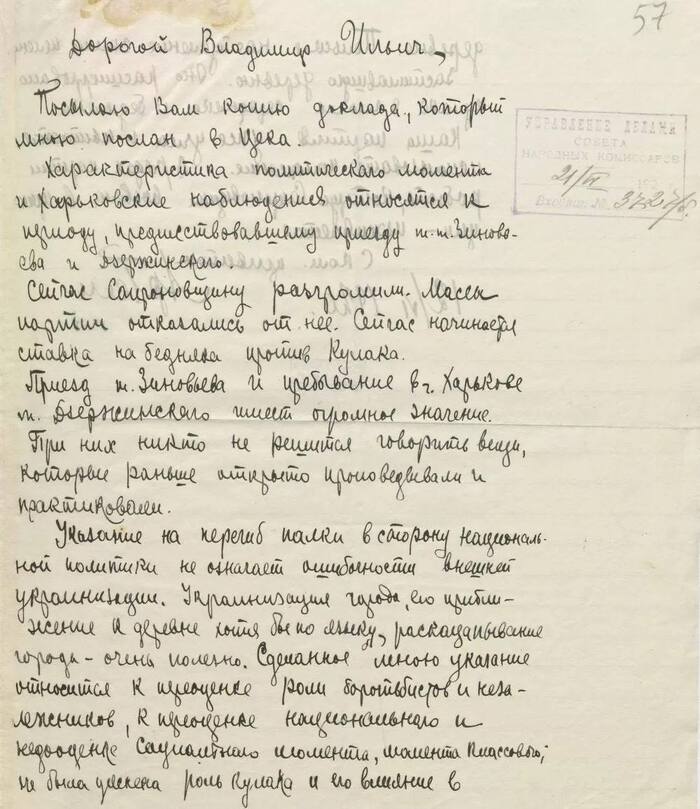 57
Дорогой Владимир Ильич,
УПРАВЛЕНИЕ ДЕЛАМИ
СОВЕТА
НАРОДНЫХ КОМИССАРОВ
21/VI 192
Входящ. №
Посылаю Вам копию доклада, который
мною послан в Цека.
Характеристика политического момента
и Харьковские наблюдения относятся к
периоду, предшествовавшему приезду т.т. Зиновь-
ева и Дзержинского.
Сейчас Сапроновщину разгромили. Массы
партии отказались от нее. Сейчас начинается
ставка на бедняка против Кулака.
Приезд т. Зиновьева и пребывание в г. Харькове
т. Дзержинского имеет огромное значение.
При них никто не решится говорить вещи,
которые раньше открыто проповедывали и
практиковали.
Указание на перегиб палки в сторону националь-
ной политики не означает ошибочности внешней
украинизации. Украинизация города, его прибли-
жение к деревне хотя бы по языку, раскацапывание
города – очень полезно. Сделанное мною указание
относится к переоценке роли боротьбистов и неза-
лежников, к переоценке национального и
недооценке социального момента, момента классового;
не была учтена роль Кулака и его влияние в